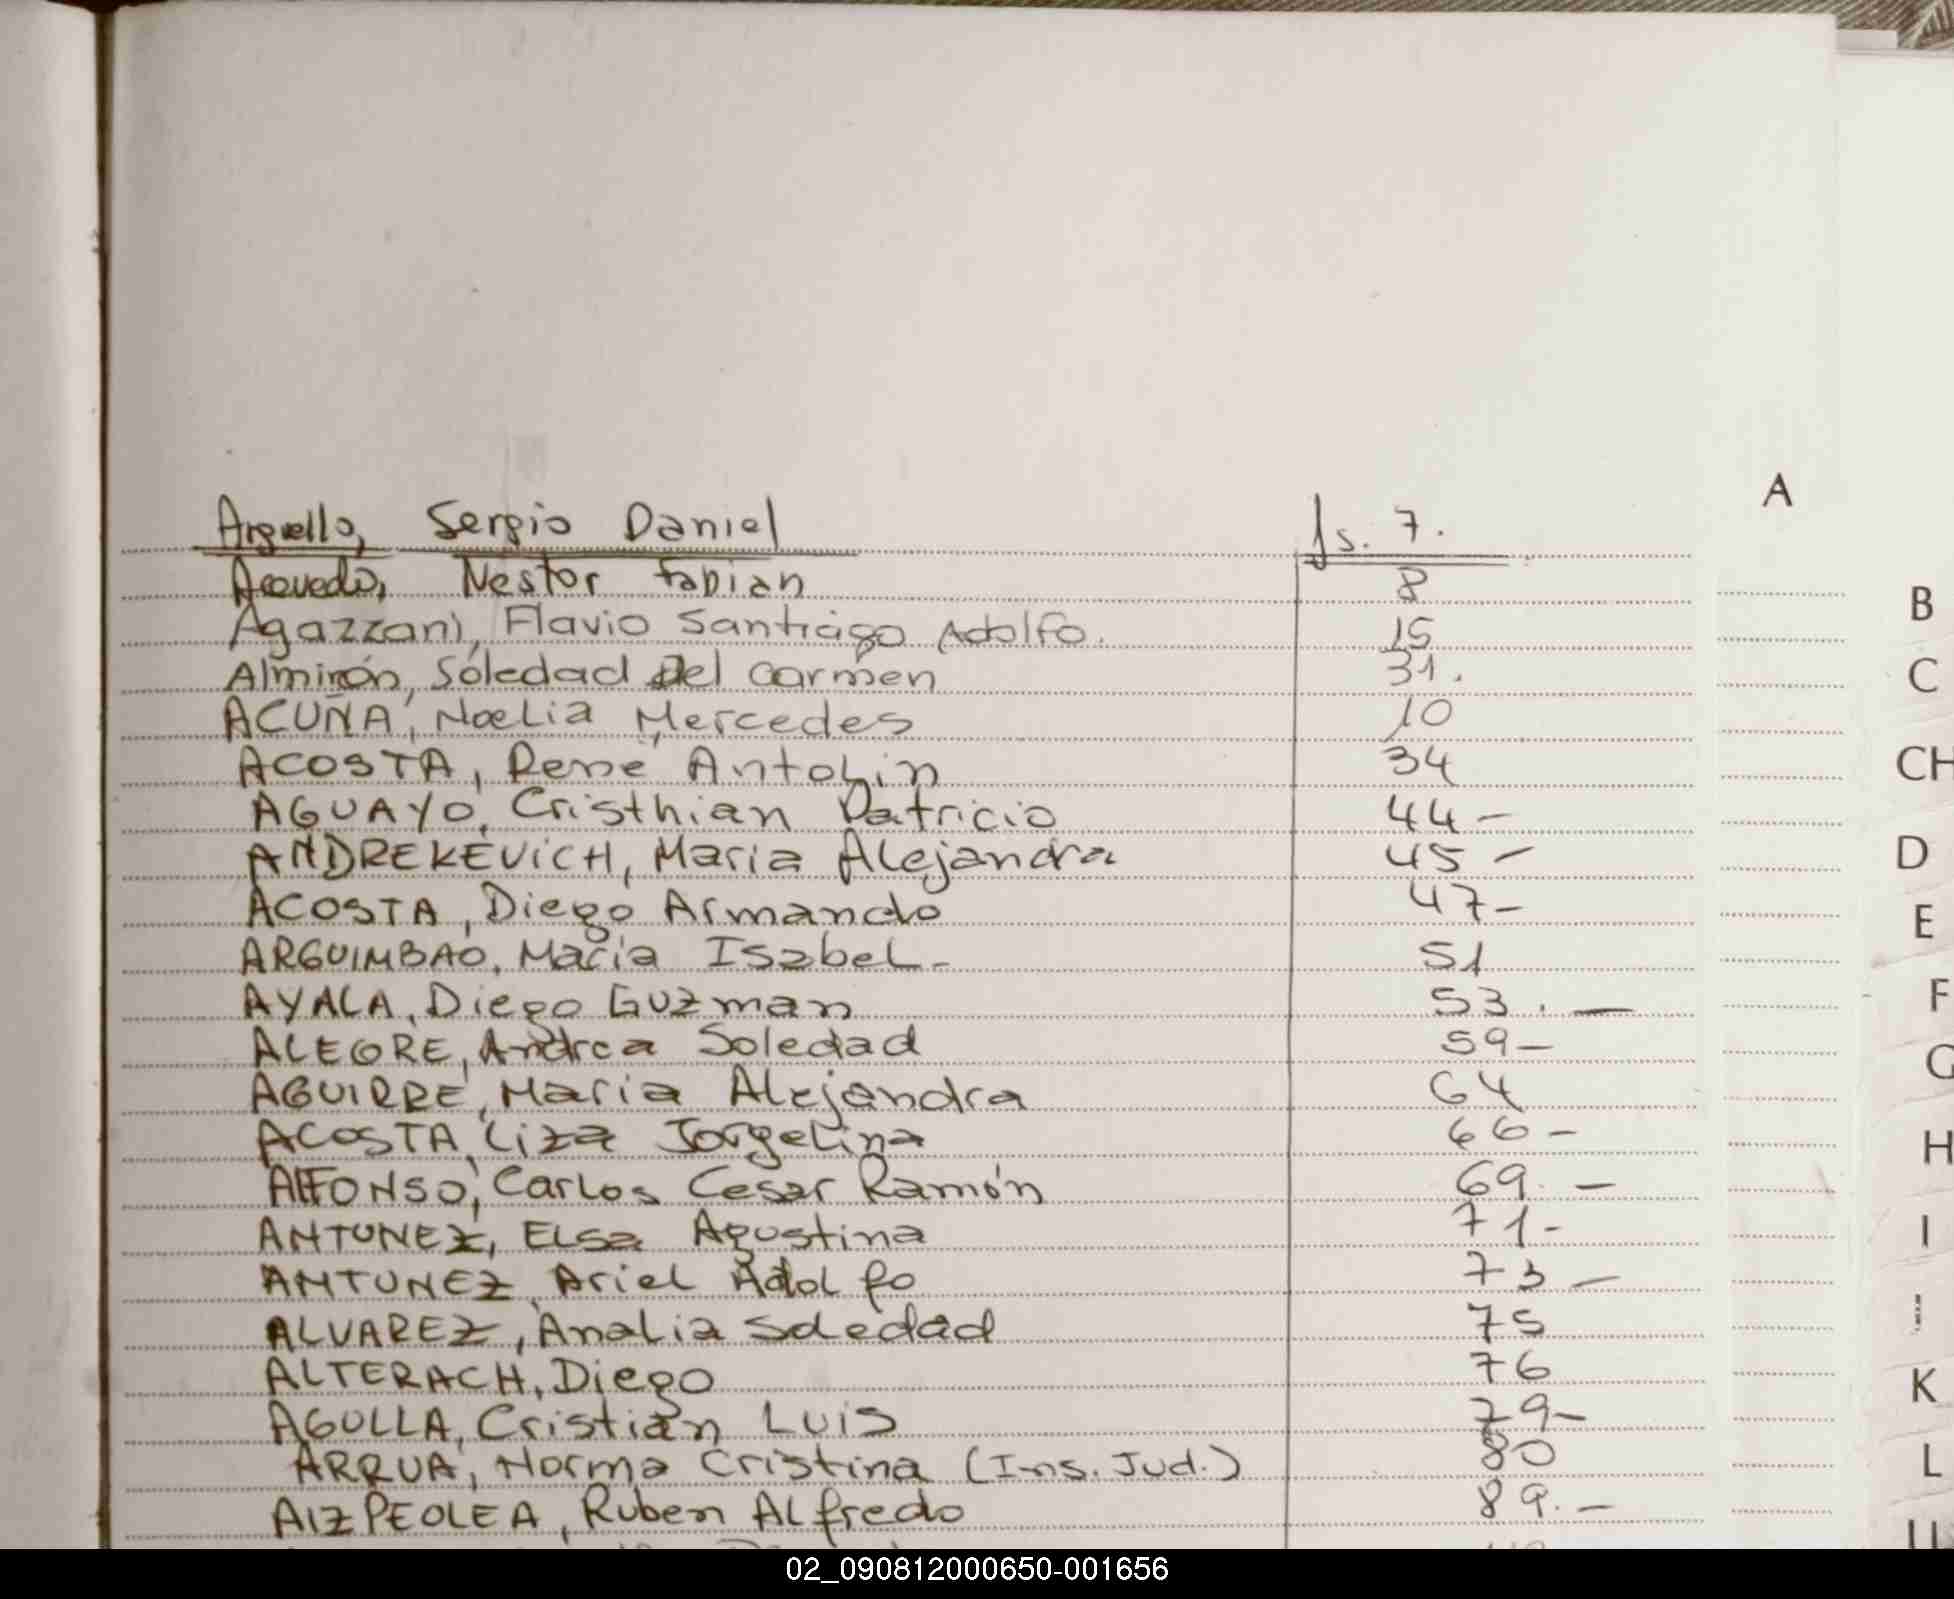 A
Arguello, Sergio Daniel fs. 7.
Acevedo, Nestor Fabian 8
Agazzani, Flavio Santiago Adolfo. 15
Almirón, Soledad Del Carmen 31.
ACUÑA, Noelia Mercedes 10
ACOSTA, Rene Antolin 34
AGUAYO, Cristhian Patricio 44 -
ANDREKEVICH, Maria Alejandra 45 -
ACOSTA, Diego Armando 47 -
ARGUIMBAO, Maria Isabel - 51
AYALA, Diego Guzman 53. -
ALEGRE, Andrea Soledad 59 -
AGUIRRE, Maria Alejandra 64
ACOSTA, Liza Jorgelina 66 -
ALFONSO, Carlos Cesar Ramón 69. -
ANTUNEZ, Elsa Agustina 71 -
ANTUNEZ, Ariel Adolfo 73 -
ALVAREZ, Analia Soledad 75
ALTERACH, Diego 76
AGULLA, Cristian Luis 79 -
ARRUA, Norma Cristina (Ins. Jud.) 80
AIZPEOLEA, Ruben Alfredo 89. -
B
C
CH
D
E
F
G
H
I
K
L
02_090812000650-001656